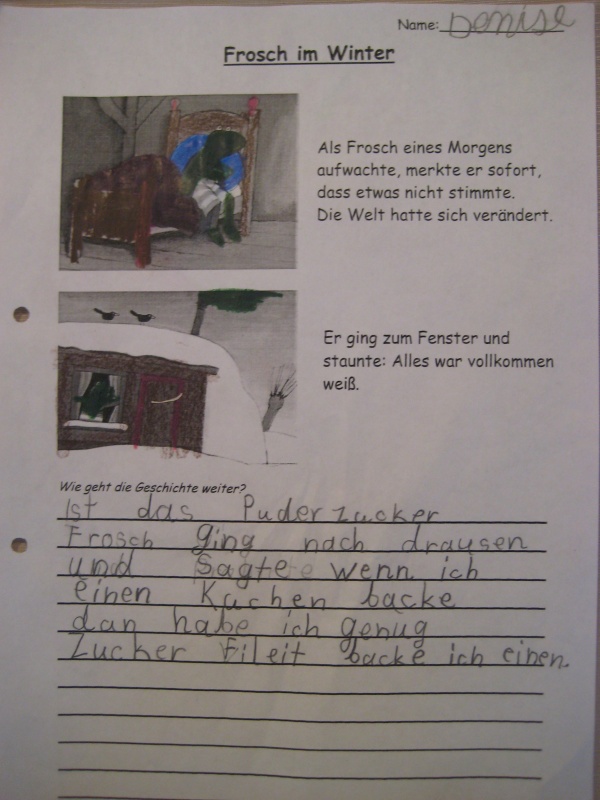 Name: Denise
Frosch im Winter
Als Frosch eines Morgens
aufwachte, merkte er sofort,
dass etwas nicht stimmte.
Die Welt hatte sich verändert.
Er ging zum Fenster und
staunte: Alles war vollkommen
weiß.
Wie geht die Geschichte weiter?
Ist das Puderzucker
Frosch ging nach drausen
und Sagte wenn ich
einen Kuchen backe
dan habe ich genug
Zucker Fileit backe ich einen.